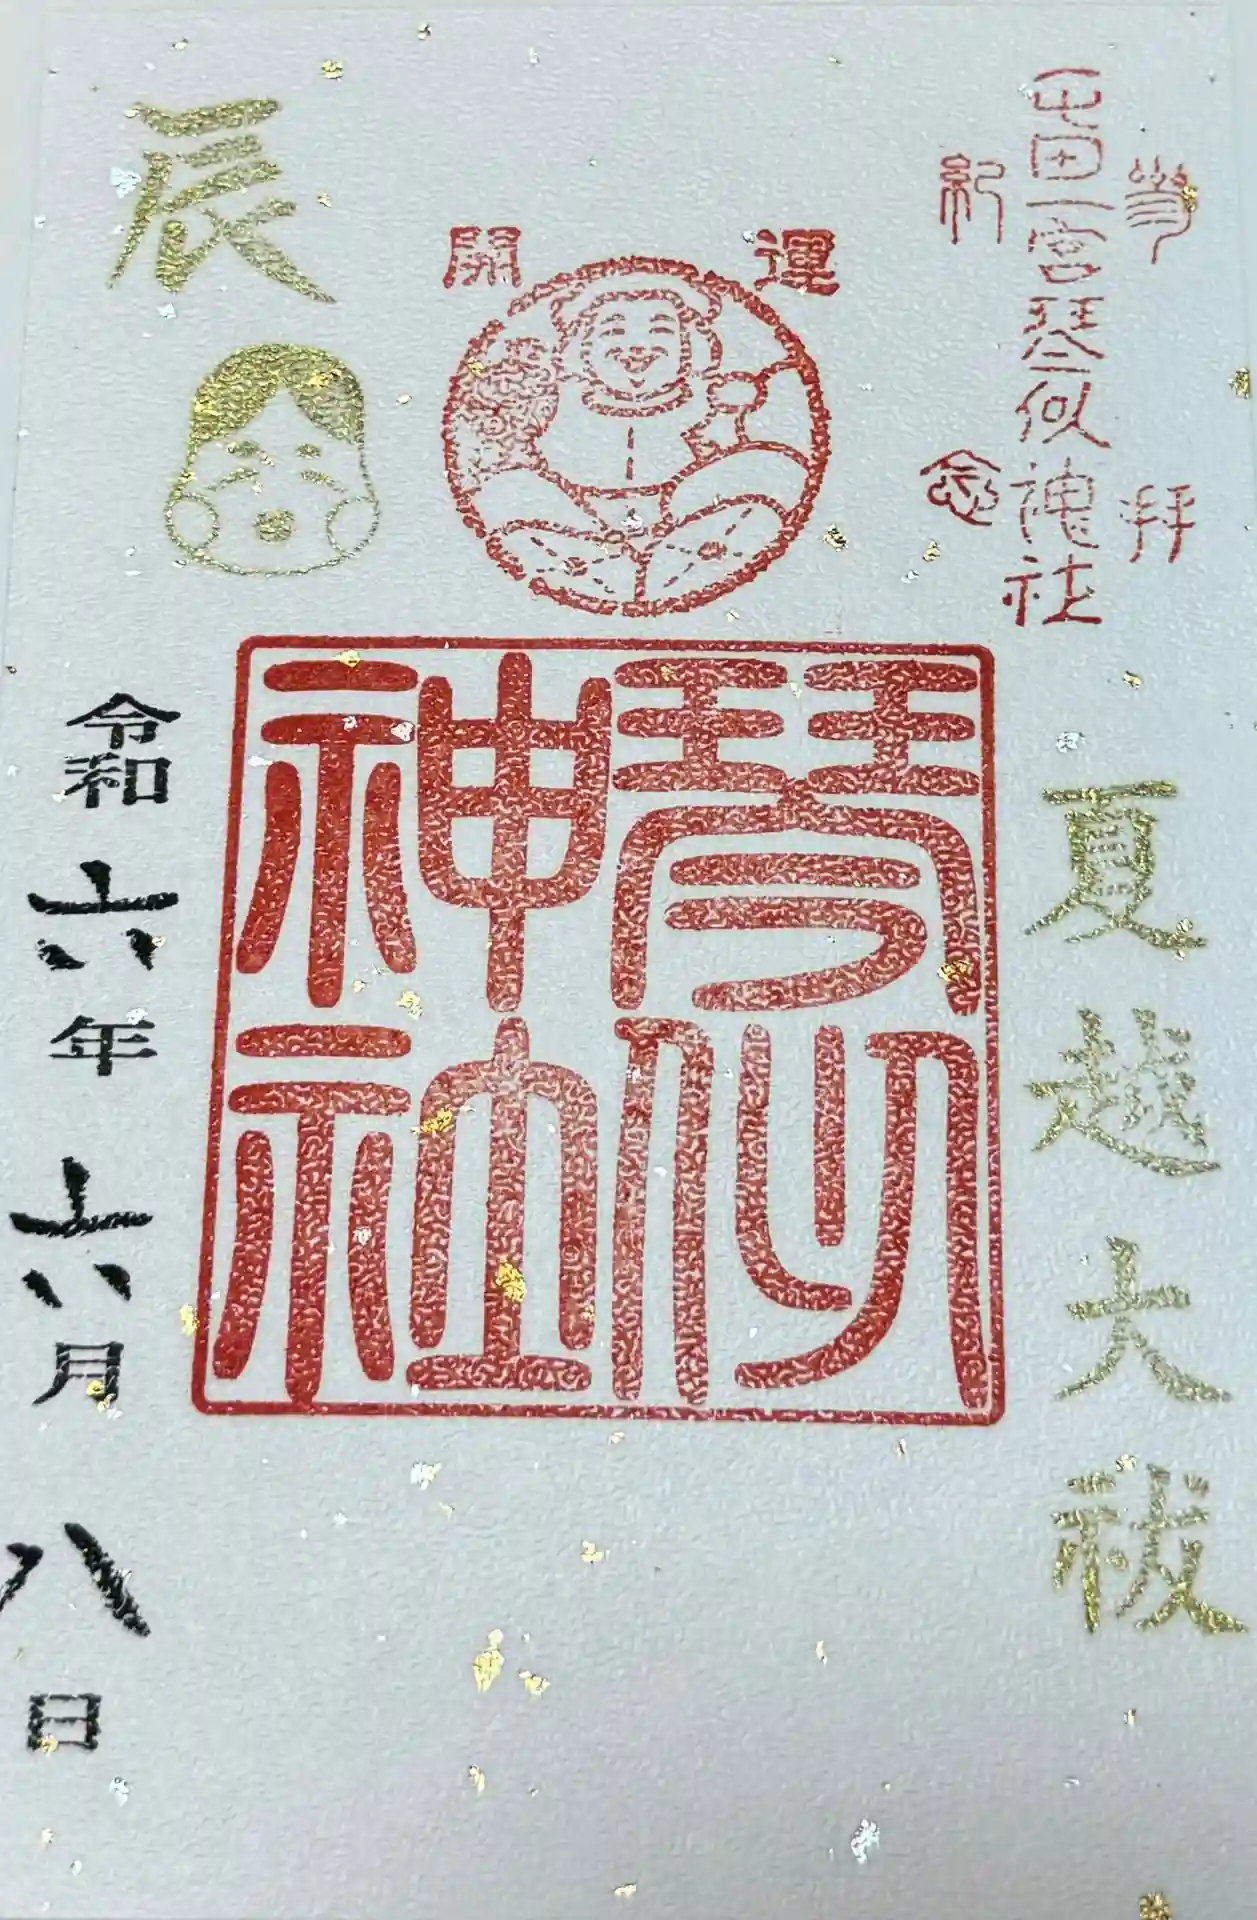 参拝
屯田一宮琴似神社
紀念
夏越大祓
開運
琴似
神社
辰
令和六年六月八日